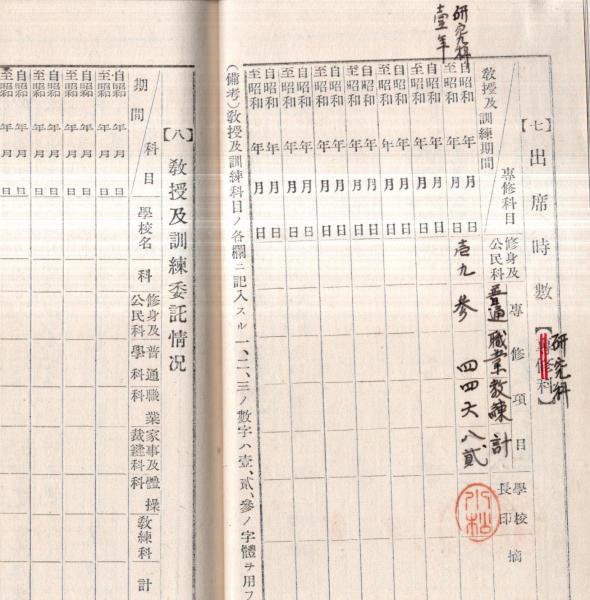 研究科
壹年
【七】出席時數【專修科】
研究科
專修科目
教授及訓練期間
修身及公民科
專修項目
普通 職業 教練 計
學校長印
摘
自昭和 年 月 日
至昭和 年 月 日
壱九 參 四四六八貳
小松
自昭和 年 月 日
至昭和 年 月 日
自昭和 年 月 日
至昭和 年 月 日
自昭和 年 月 日
至昭和 年 月 日
自昭和 年 月 日
至昭和 年 月 日
自昭和 年 月 日
至昭和 年 月 日
自昭和 年 月 日
至昭和 年 月 日
(備考)教授及訓練科目ノ各欄ニ記入スル一、二、三ノ數字ハ壹、貳、參ノ字體ヲ用フ
【八】教授及訓練委託情况
科目
期間
學校名
科
修身及公民科
普通學科
職業科
家事及裁縫科
體操科
教練科
計
自昭和 年 月 日
至昭和 年 月 日
自昭和 年 月 日
至昭和 年 月 日
自昭和 年 月 日
至昭和 年 月 日
自昭和 年 月 日
至昭和 年 月 日